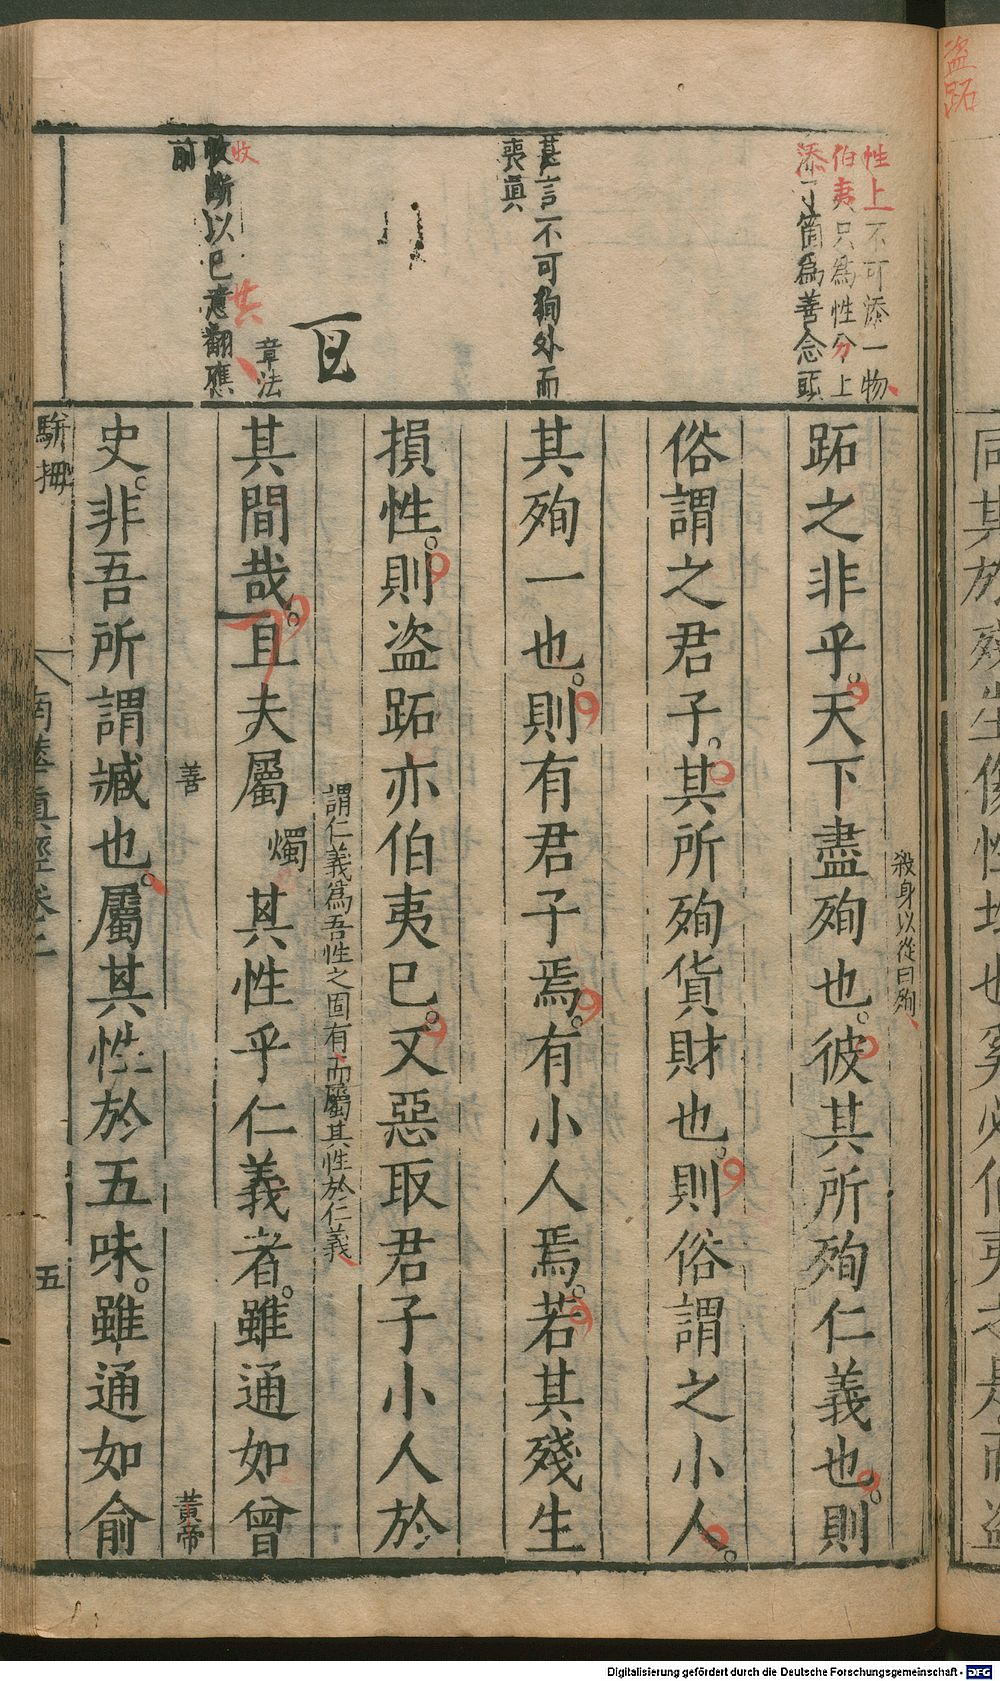 盜跖
同其於殘生傷性
性上不可添一物
伯夷只為性分上
添了箇為善念頭
甚言不可狥外而
喪眞
章法
收
收斷以已意翻應
前
殺身以從曰殉
跖之非乎。天下盡殉也。彼其所殉仁義也。則
俗謂之君子。其所殉貨財也。則俗謂之小人。
其殉一也。則有君子焉。有小人焉。若其殘生
損性。則盜跖亦伯夷巳。又惡取君子小人於
謂仁義爲吾性之固有而屬其性於仁義
其間哉。且夫屬燭其性乎仁義者。雖通如曾
善
黃帝
史。非吾所謂臧也。屬其性於五味。雖通如俞
駢拇
南華眞經卷
五
Digitalisierung gefördert durch die Deutsche Forschungsgemeinschaft - DFG